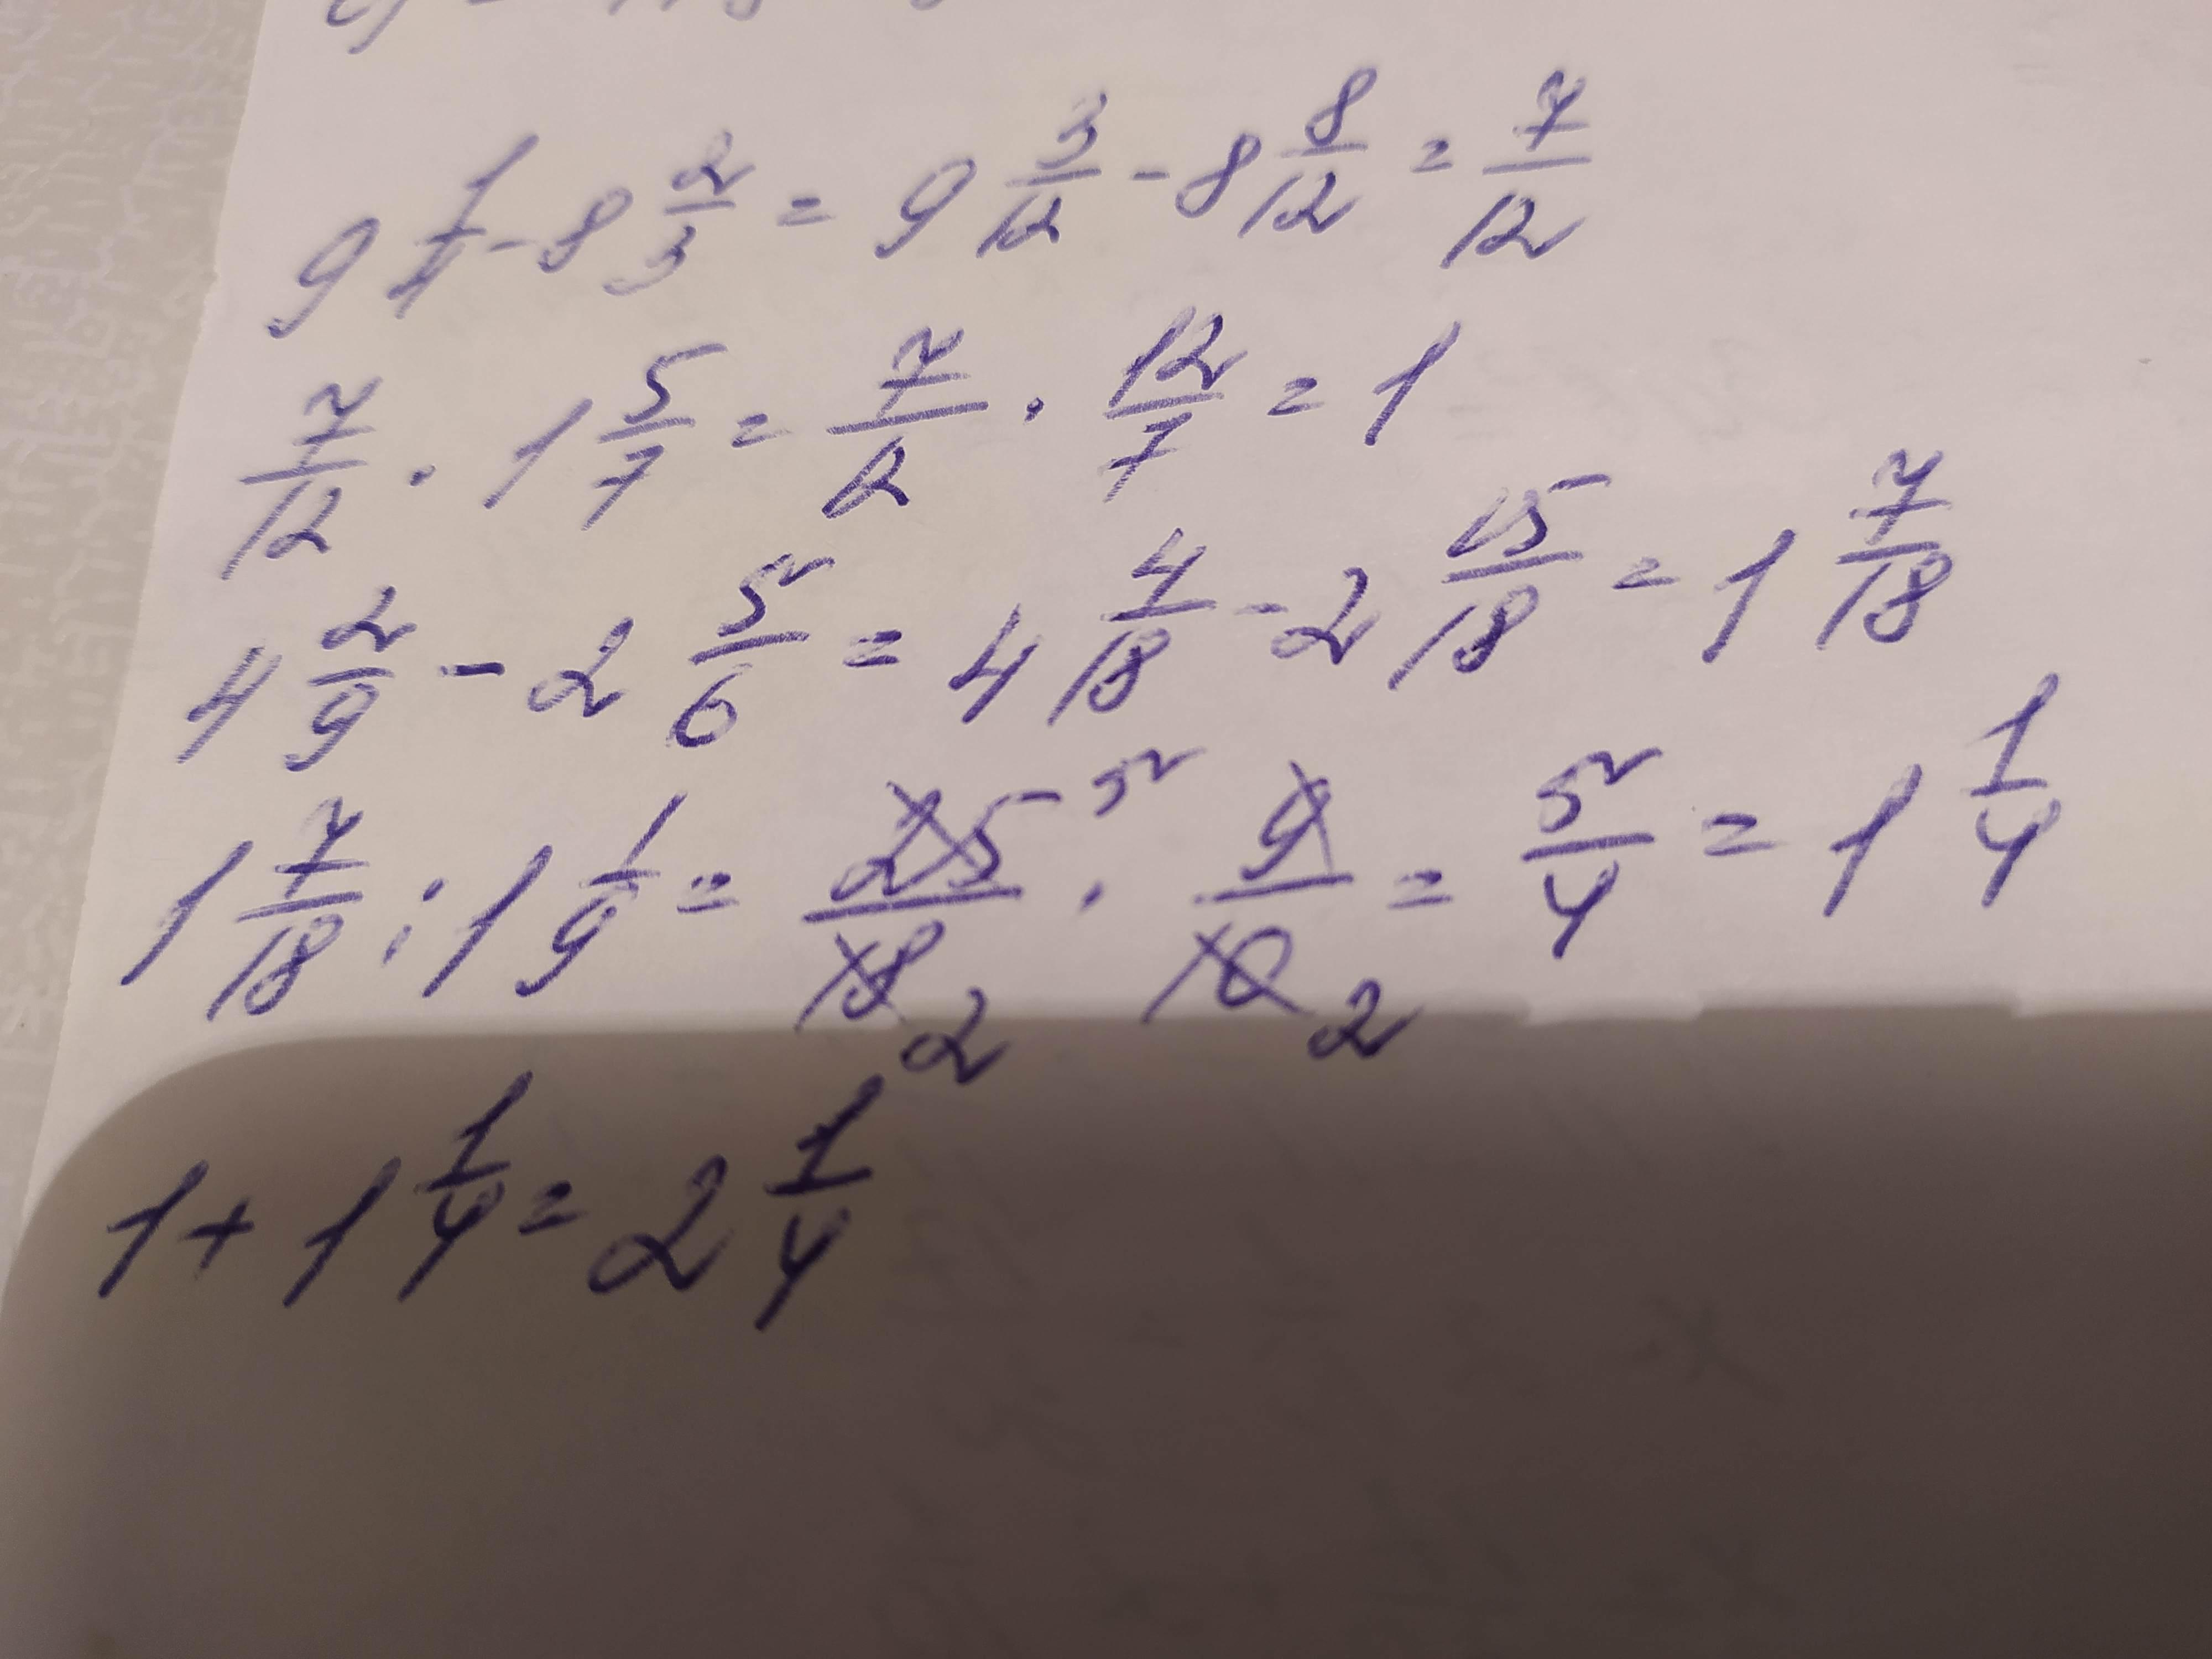 9 1/4 - 8 2/3 = 9 3/12 - 8 8/12 = 7/12
7/12 · 1 5/7 = 7/12 · 12/7 = 1
4 2/9 - 2 5/6 = 4 4/18 - 2 15/18 = 1 7/18
1 7/18 : 1 1/9 = 25 5/18 2 · 9/10 2 = 5/4 = 1 1/4
1 + 1 1/4 = 2 1/4